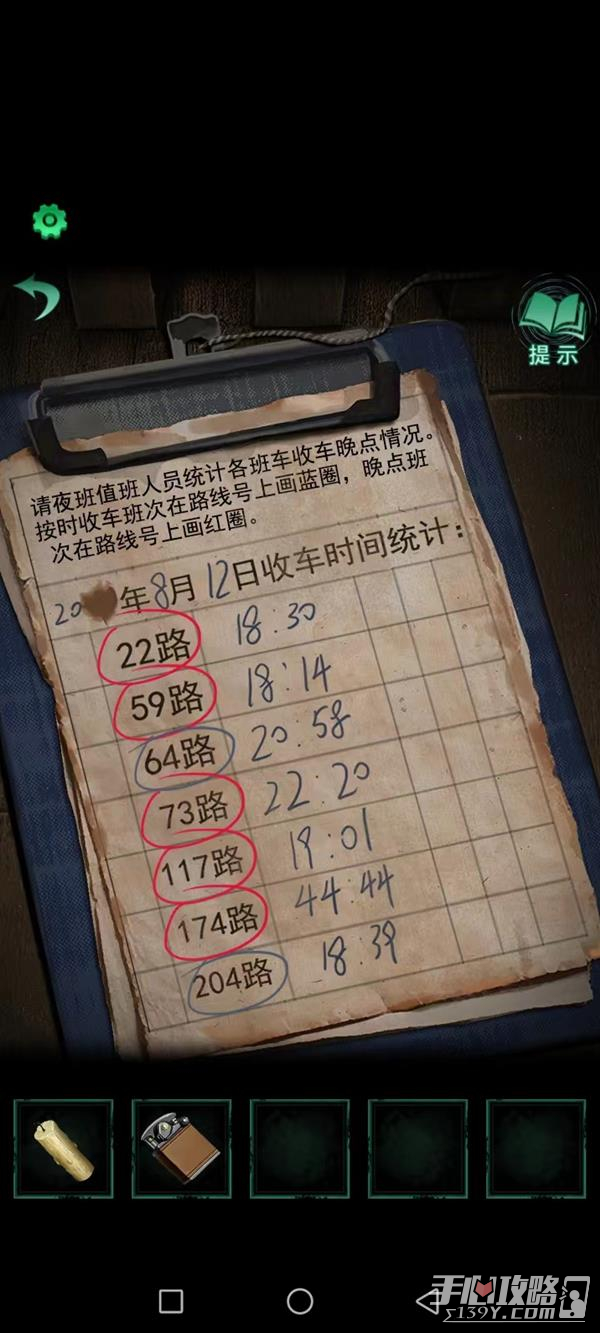 提示
请夜班值班人员统计各班车收车晚点情况。
按时收车班次在路线号上画蓝圈，晚点班
次在路线号上画红圈。
20 年8月12日收车时间统计：
22路 18:30
59路 18:14
64路 20:58
73路 22:20
117路 19:01
174路 44:44
204路 18:39
手心攻略